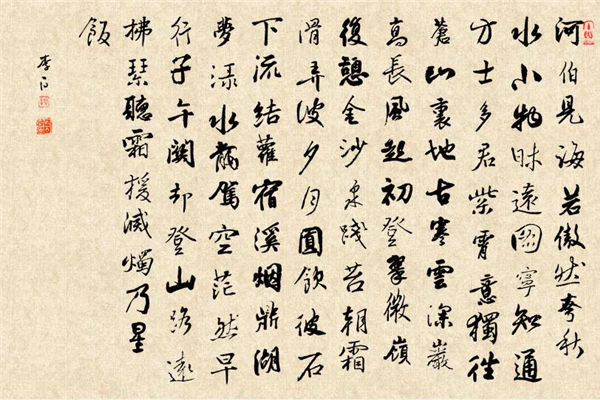 河伯見海若傲然夸秋
水小物昧遠圖寧知通
方士多君紫霄意獨往
蒼山裏地古寒雲深巖
高長風起初登翠微嶺
復憩金沙泉踐苔朝霜
滑弄波夕月圓飲彼石
下流結蘿宿溪烟鼎湖
夢渌水龍駕空茫然早
行子午關却登山路遠
拂琴聽霜猨滅燭乃星
飯
李